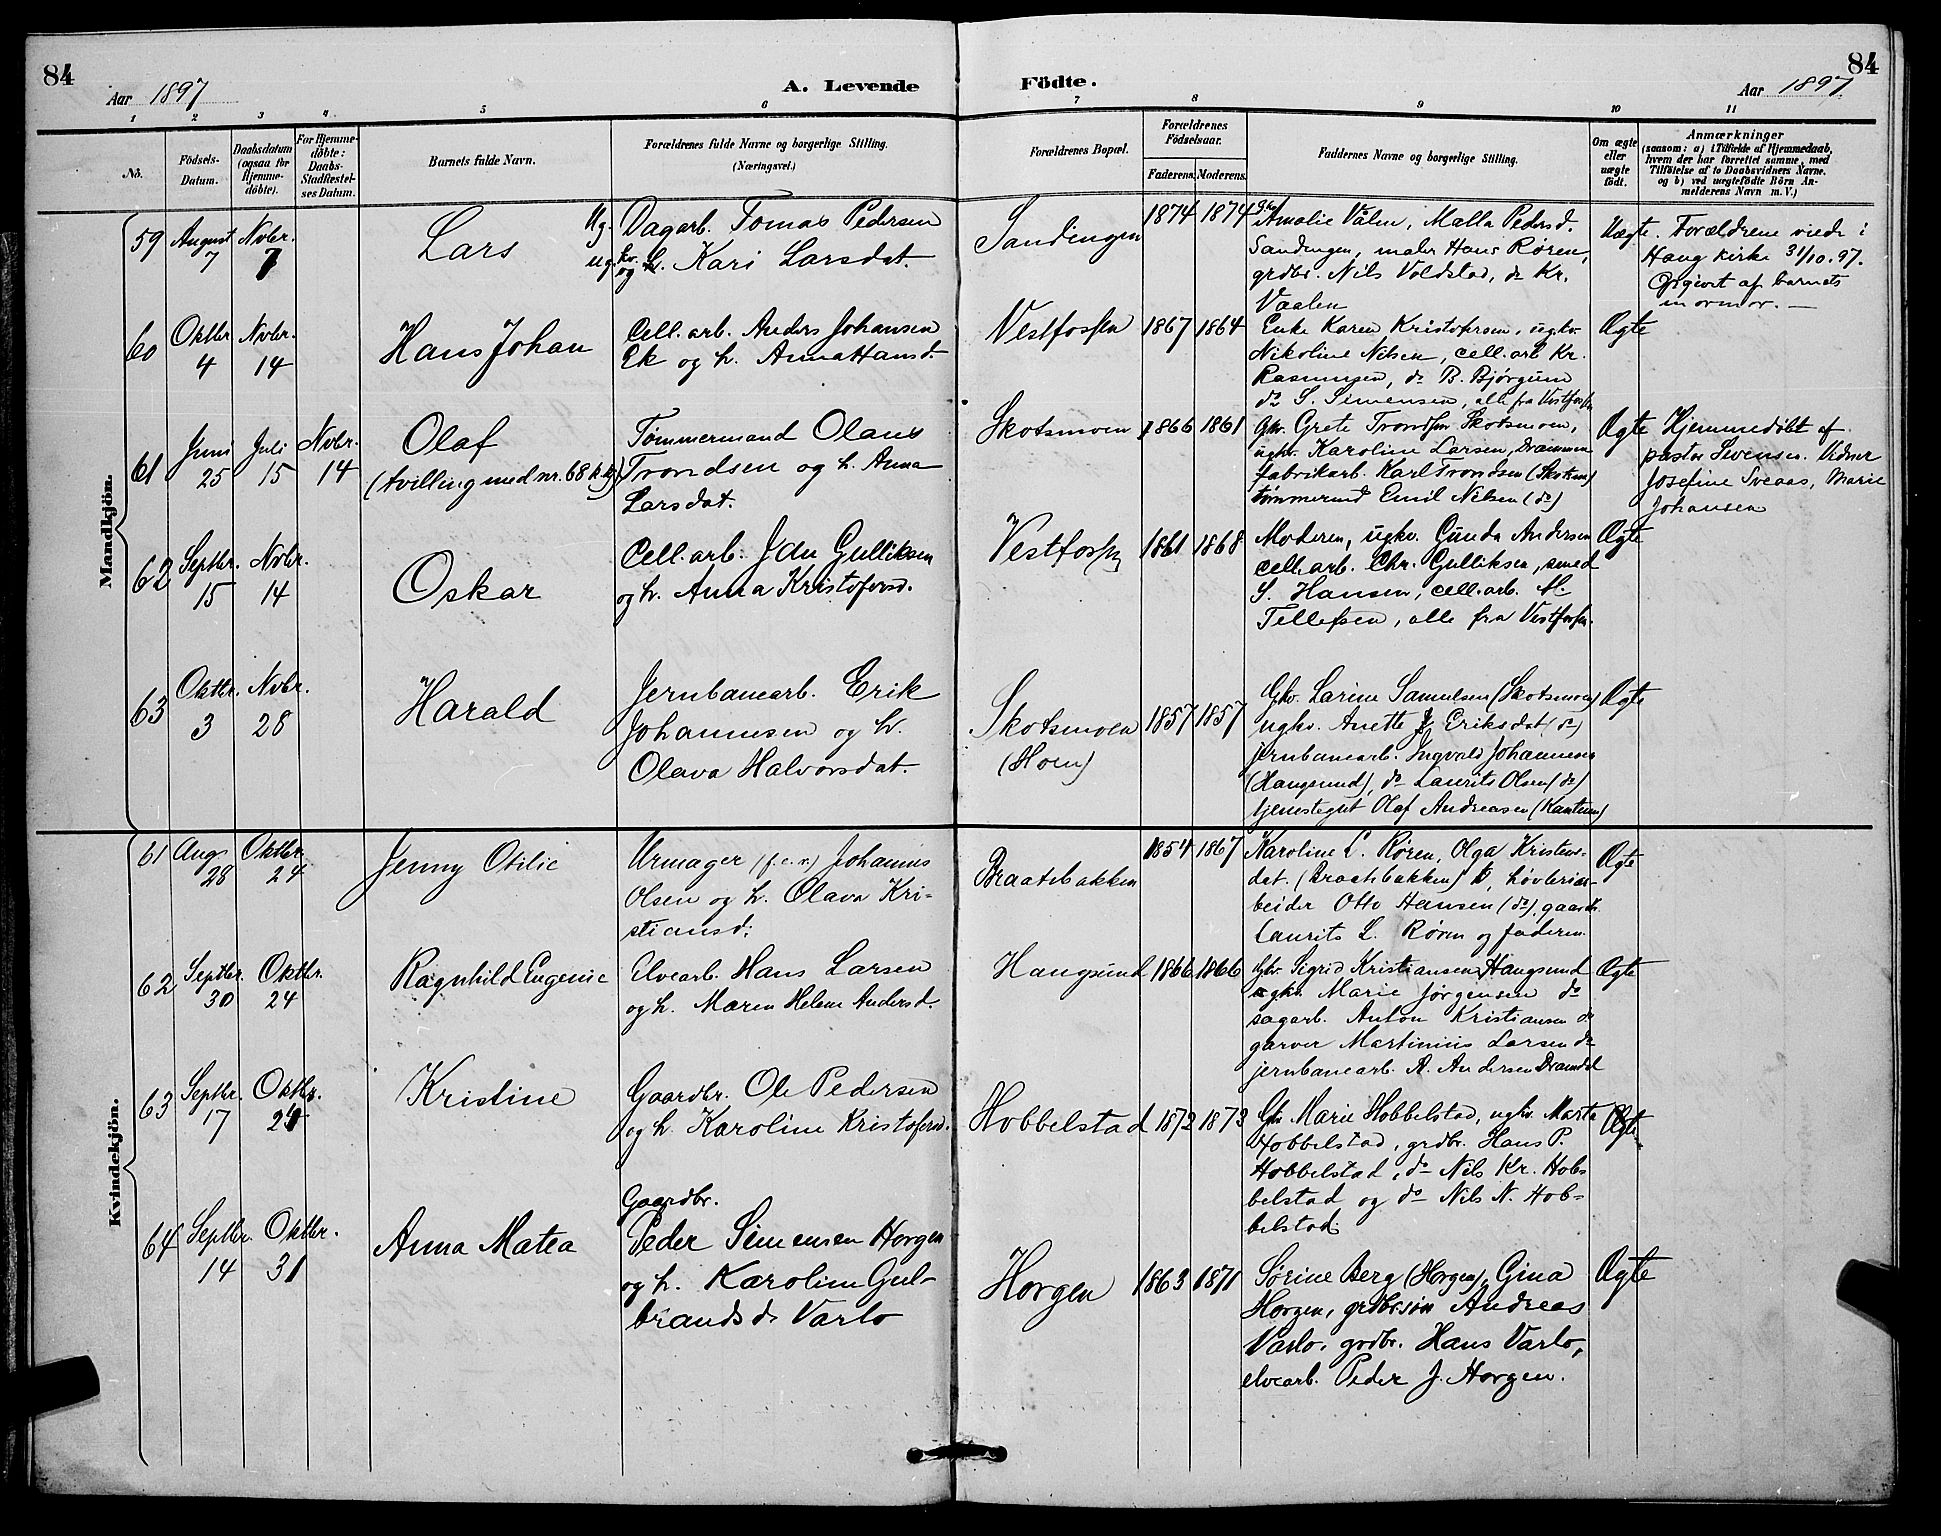 84
84
Aar 1897
A. Levende
Födte.
Aar 1897
1 2 3 4 5 6 7 8 9 10 11
No.
Födsels-
Datum.
Daabsdatum
(ogsaa for
Hjemme-
döbte).
For Hjemme-
döbte:
Daabs-
Stadfæstel-
ses Datum.
Barnets fulde Navn.
Forældrenes fulde Navne og borgerlige Stilling.
(Næringsvei.)
Forældrenes Bopæl.
Forældrenes
Födselsaar.
Faderens. Moderens.
Faddernes Navne og borgerlige Stilling.
Om ægte
eller
uægte
födt.
Anmærkninger
(saasom: a) i Tilfælde af Hjemmedaab,
hvem der har forrettet samme, med
Tilföielse af to Daabsvidners Navne.
og b) ved uægtefödte Börn An-
melderens Navn m. V.)
Mandkjön.
59
August
7
Novbr.
7
Lars
Ug. Dagarb. Tomas Pedersen
ug. kv. og Kari Larsdat.
Sandingen
1874
1874
Gkv. Amalie Vålen, Malla Pedersd.
Sandingen, maler Hans Røren,
grdbr. Nils Voldstad, do Kr.
Vaalen
Uægte.
Forældrene viede i
Haug kirke 31/10.97.
Opgivet af barnets
mormor. —
60
Oktbr.
4
Novbr.
14
Hans Johan
Cell.arb. Anders Johansen
Ek og h. Anna Hansd.
Vestfossen
1867
1864
Enke Karen Kristofersen, ugkv.
Nikoline Nilsen, cell.arb. Kr.
Rasmussen, do B. Bjørgum
do S. Simensen, alle fra Vestfossen
Ægte
61
Juni
25
Juli
15
Novbr.
14
Olaf
(tvilling med nr. 68 kvk)
Tømmermand Olaus
Trondsen og h. Anna
Larsdat.
Skotsmoen
1866
1861
Gkv. Grete Trondsen Skotsmoen,
ugkv. Karoline Larsen, Drammen
fabrikarb. Karl Trondsen (Skotsm)
tømmermd Emil Nilsen (do)
Ægte
Hjemmedøbt af
pastor Svensen. Vidner
Josefine Sveaas, Marie
Johansen
62
Septbr.
15
Novbr.
14
Oskar
Cell.arb. Idar Gulliksen
og h. Anna Kristofersd.
Vestfossen
1861
1868
Moderen, ugkv. Gunda Andersen
cell.arb. Chr. Gulliksen, smed
S. Hansen, cell.arb. M.
Tellefsen, alle fra Vestfossen.
Ægte
63
Oktbr.
3
Novbr.
28
Harald
Jernbanearb. Erik
Johannesen og h.
Olava Halvorsdat.
Skotsmoen
(Hoen)
1857
1857
Gkv. Larine Samuelsen (Skotsmoen)
ugkv. Anette Eriksdat (do)
jernbanearb. Ingvald Johannesen
(Haugsund), do Laurits Olsen (do)
tjenestegut Olaf Andreasen (Kantum)
Ægte
Kvindekjön.
61
Aug.
28
Oktbr.
24
Jenny Otilie
Urmager (f.e.x.) Johannes
Olsen og h. Olava Kri-
stiansd.
Braatabakken
1854
1867
Karoline L. Røren, Olga Kristens-
dat. (Braatabakken), høvleriar-
beider Otto Hansen (do), gaardbr.
Laurits L. Røren og faderen.
Ægte
62
Septbr.
30
Oktbr.
24
Ragnhild Eugenie
Elvearb. Hans Larsen
og h. Maren Helene Andersd.
Haugsund
1866
1866
Gkv. Sigrid Kristiansen Haugsund
ugkv. Marie Jørgensen do
sagarb. Anton Kristiansen do
garver Martinius Larsen do
jernbanearb. A. Andersen Dramdal
Ægte
63
Septbr.
17
Oktbr.
24
Kristine
Gaardbr. Ole Pedersen
og h. Karoline Kristofersd.
Hobbelstad
1872
1873
Gkv. Marie Hobbelstad, ugkv. Marta
Hobbelstad, grdbr. Hans P.
Hobbelstad, do Nils Kr. Hob-
belstad og do Nils N. Hob-
belstad.
Ægte
64
Septbr.
14
Oktbr.
31
Anna Matea
Gaardbr.
Peder Simensen Horgen
og h. Karoline Gul-
brandsd. Varlo
Horgen
1863
1871
Sørine Berg (Horgen), Gina
Horgen, grdbrsøn Andreas
Varlo, grdbr. Hans Varlo,
elvearb. Peder J. Horgen.
Ægte